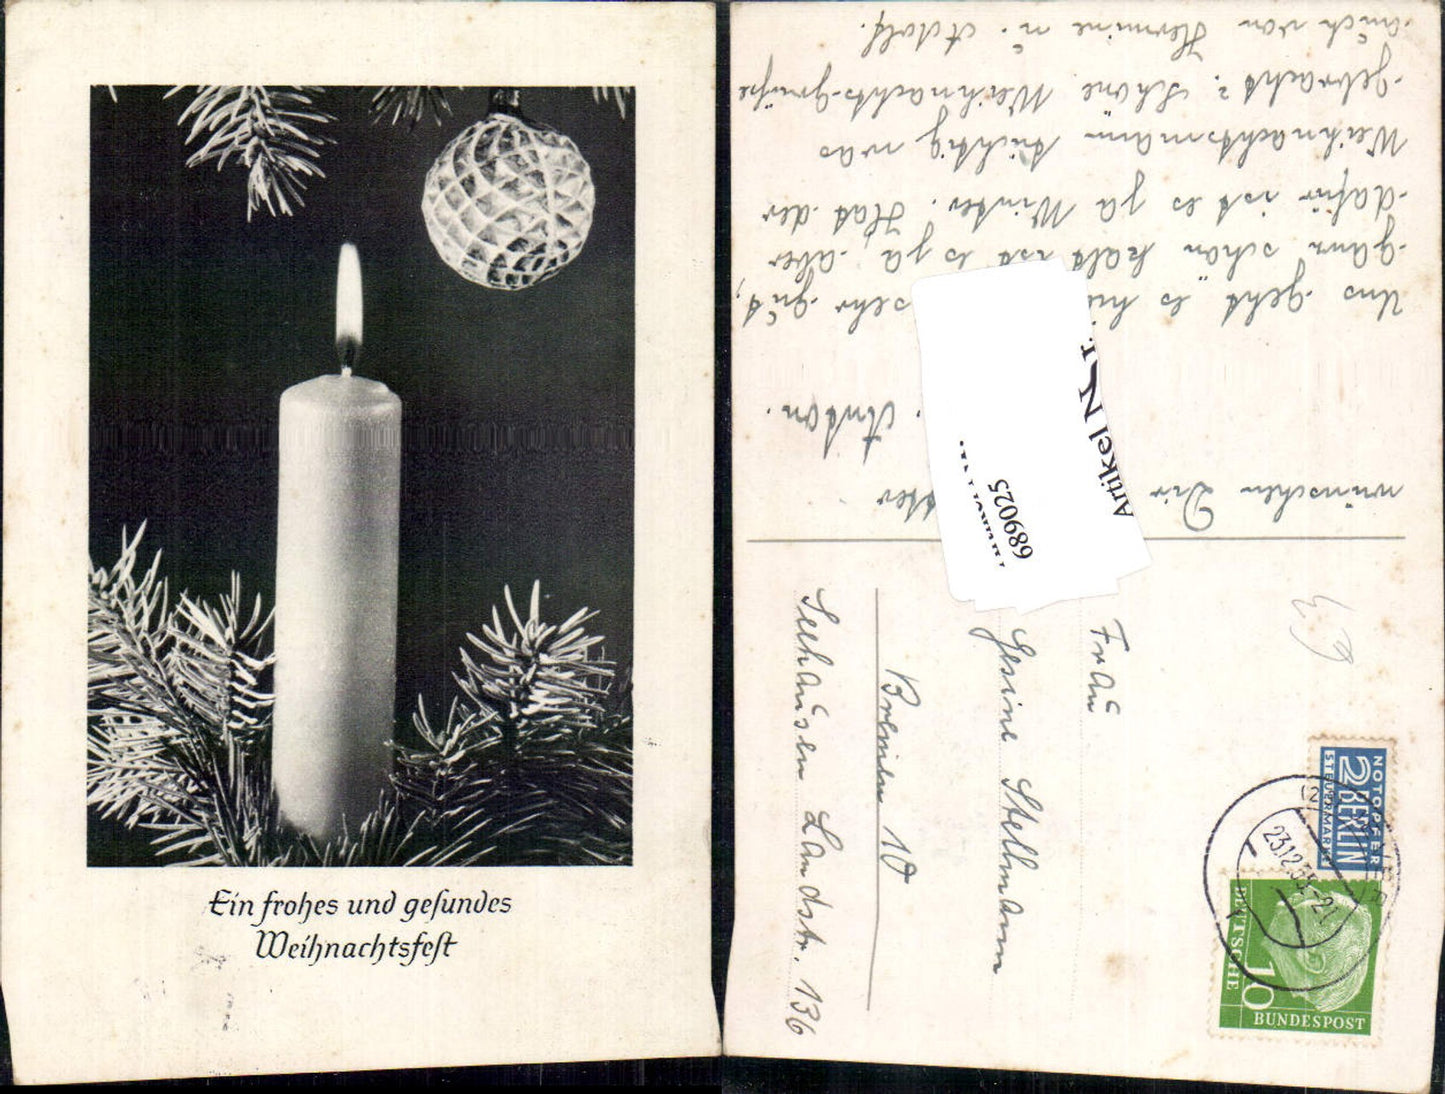 Ein frohes und gesundes
Weihnachtsfest
wünschen Dir
Anton.
Uns geht es hier sehr gut,
ganz schön kalt ist es ja aber
dafür ist es ja Winter. Hat der
Weihnachtsmann tüchtig was
gebracht? Schöne Weihnachts-Grüße
auch von Hermine u. Adolf.
Artikel Nr.
689025
Frau
Gesine Stellmann
Bremen 10
Seehausen Landstr. 136
NOTOPFER
2 BERLIN
STEUERMARKE
23.12.55-21
DEUTSCHE
10
BUNDESPOST